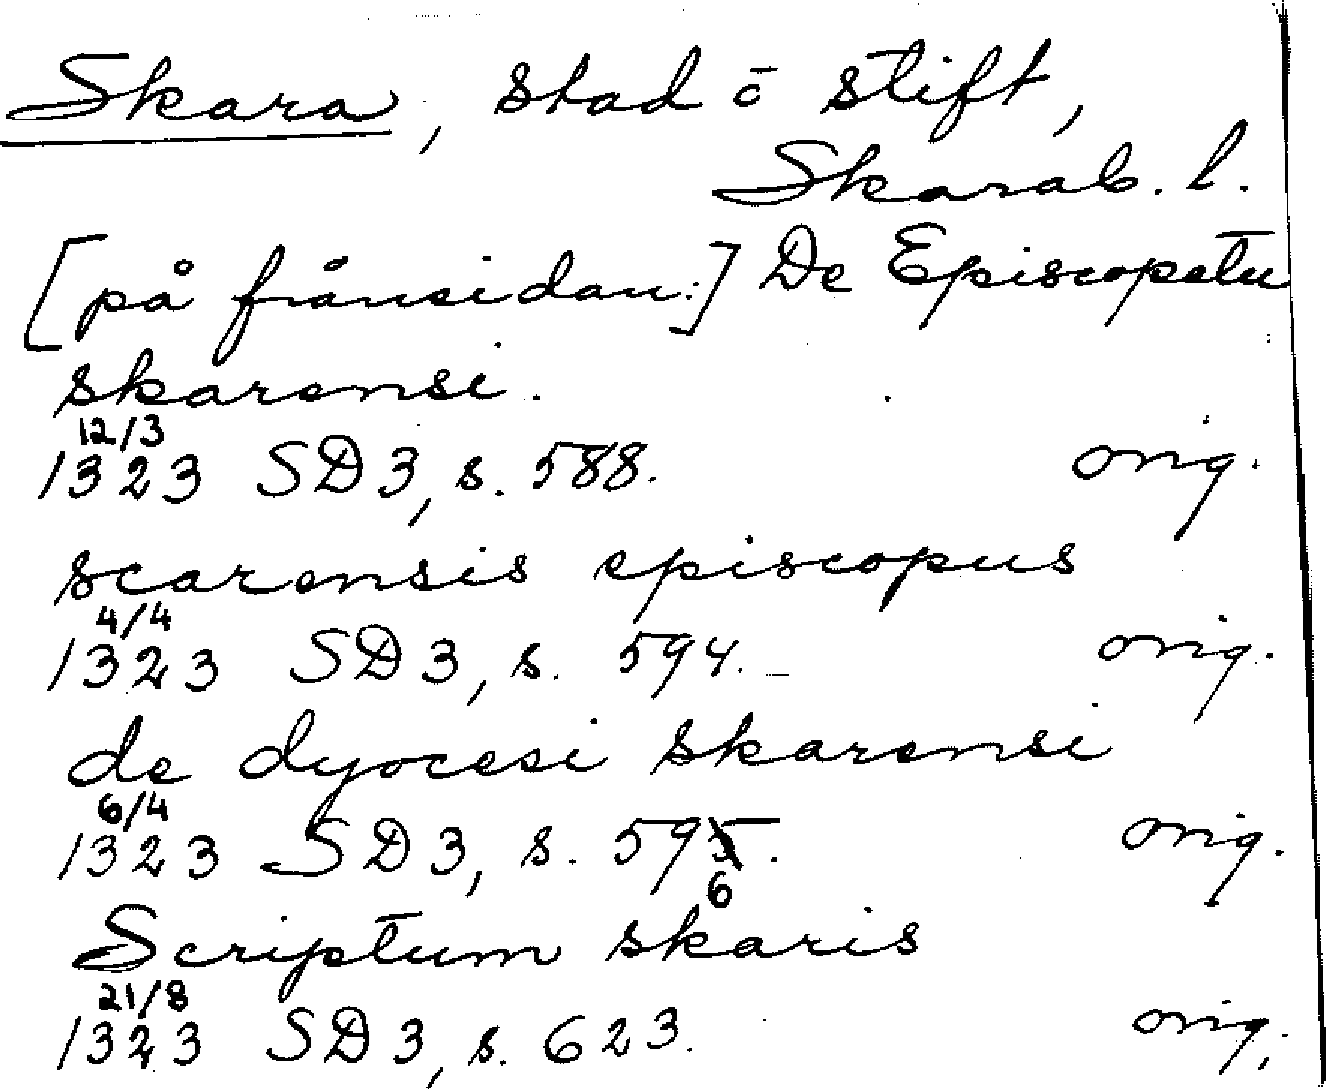 Skara, stad ō stift,
Skarab. l.
[på frånsidan:] De Episcopatu
skarensi.
12/3
1323 SD3, s. 588. orig.
scarensis episcopus
4/4
1323 SD3, s. 594. orig.
de dyocesi skarensi
6/4
1323 SD3, s. 595. orig.
6
Scriptum skaris
21/8
1323 SD3, s. 623. orig.